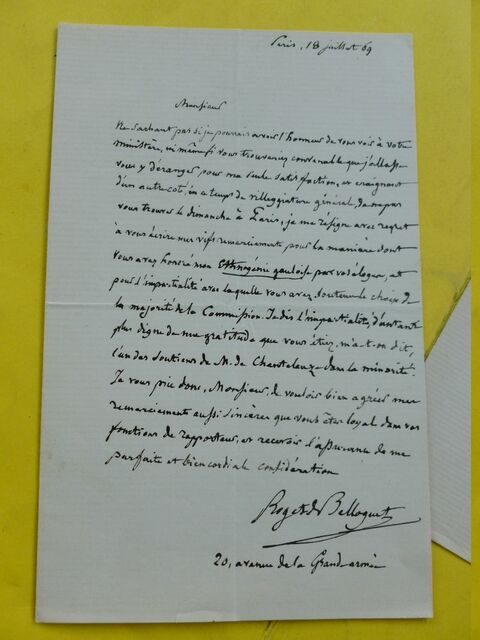 Paris, 18 juillet 69
Monsieur
Ne sachant pas si je pourrais avoir l'honneur de vous voir à votre
ministère, ni même si vous trouveriez convenable que j'allasse
vous y déranger pour ma seule satisfaction, et craignant
d'un autre coté, en ce temps de villeggiature général, de ne pas
vous trouver le dimanche à Paris, je me résigne avec regret
à vous écrire mes vifs remerciements pour la manière dont
vous avez honoré mon Ethnogénie gauloise par vos éloges, et
pour l'impartialité avec laquelle vous avez soutenu le choix de
la majorité de la Commission. Je dis l'impartialité, d'autant
plus digne de ma gratitude que vous étiez, m'a-t-on dit,
l'un des soutiens de M. de Chantelauze dans la minorité.
Je vous prie donc, Monsieur, de vouloir bien agréer mes
remerciements aussi sincères que vous êtes loyal dans vos
fonctions de rapporteur, et recevoir l'assurance de ma
parfaite et bien cordiale considération
Roget de Belloguet
20, avenue de la Grande armée